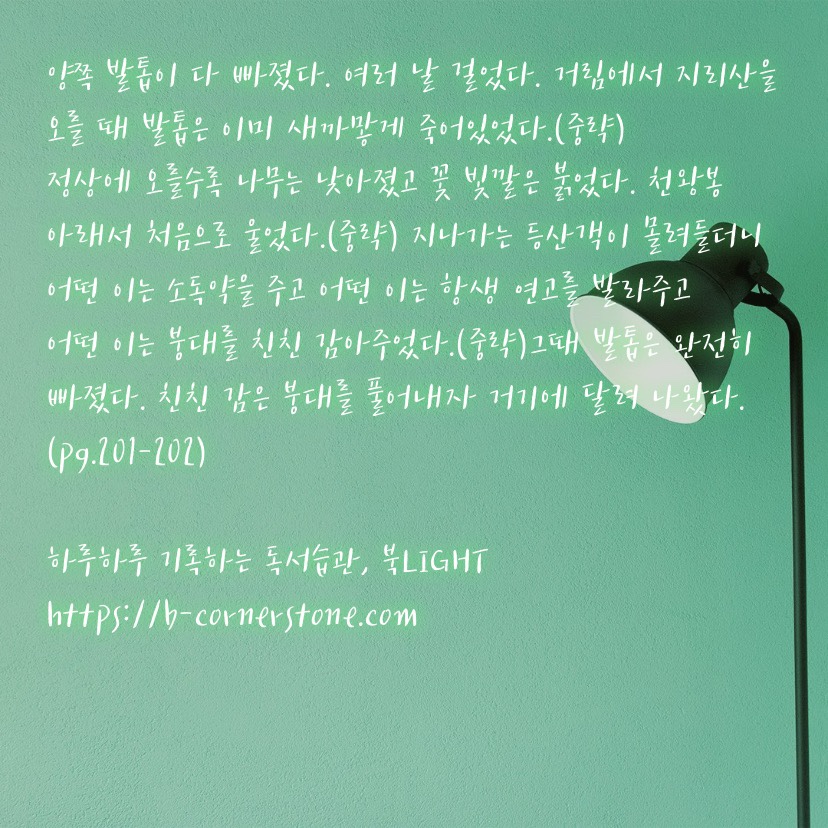 양쪽 발톱이 다 빠졌다. 여러 날 걸었다. 거림에서 지리산을
오를 때 발톱은 이미 새까맣게 죽어있었다.(중략)
정상에 오를수록 나무는 낮아졌고 꽃 빛깔은 붉었다. 천왕봉
아래서 처음으로 울었다.(중략) 지나가는 등산객이 몰려들더니
어떤 이는 소독약을 주고 어떤 이는 항생 연고를 발라주고
어떤 이는 붕대를 친친 감아주었다.(중략)그때 발톱은 완전히
빠졌다. 친친 감은 붕대를 풀어내자 거기에 달려 나왔다.
(pg.201-202)
하루하루 기록하는 독서습관, 북LIGHT
https://b-cornerstone.com